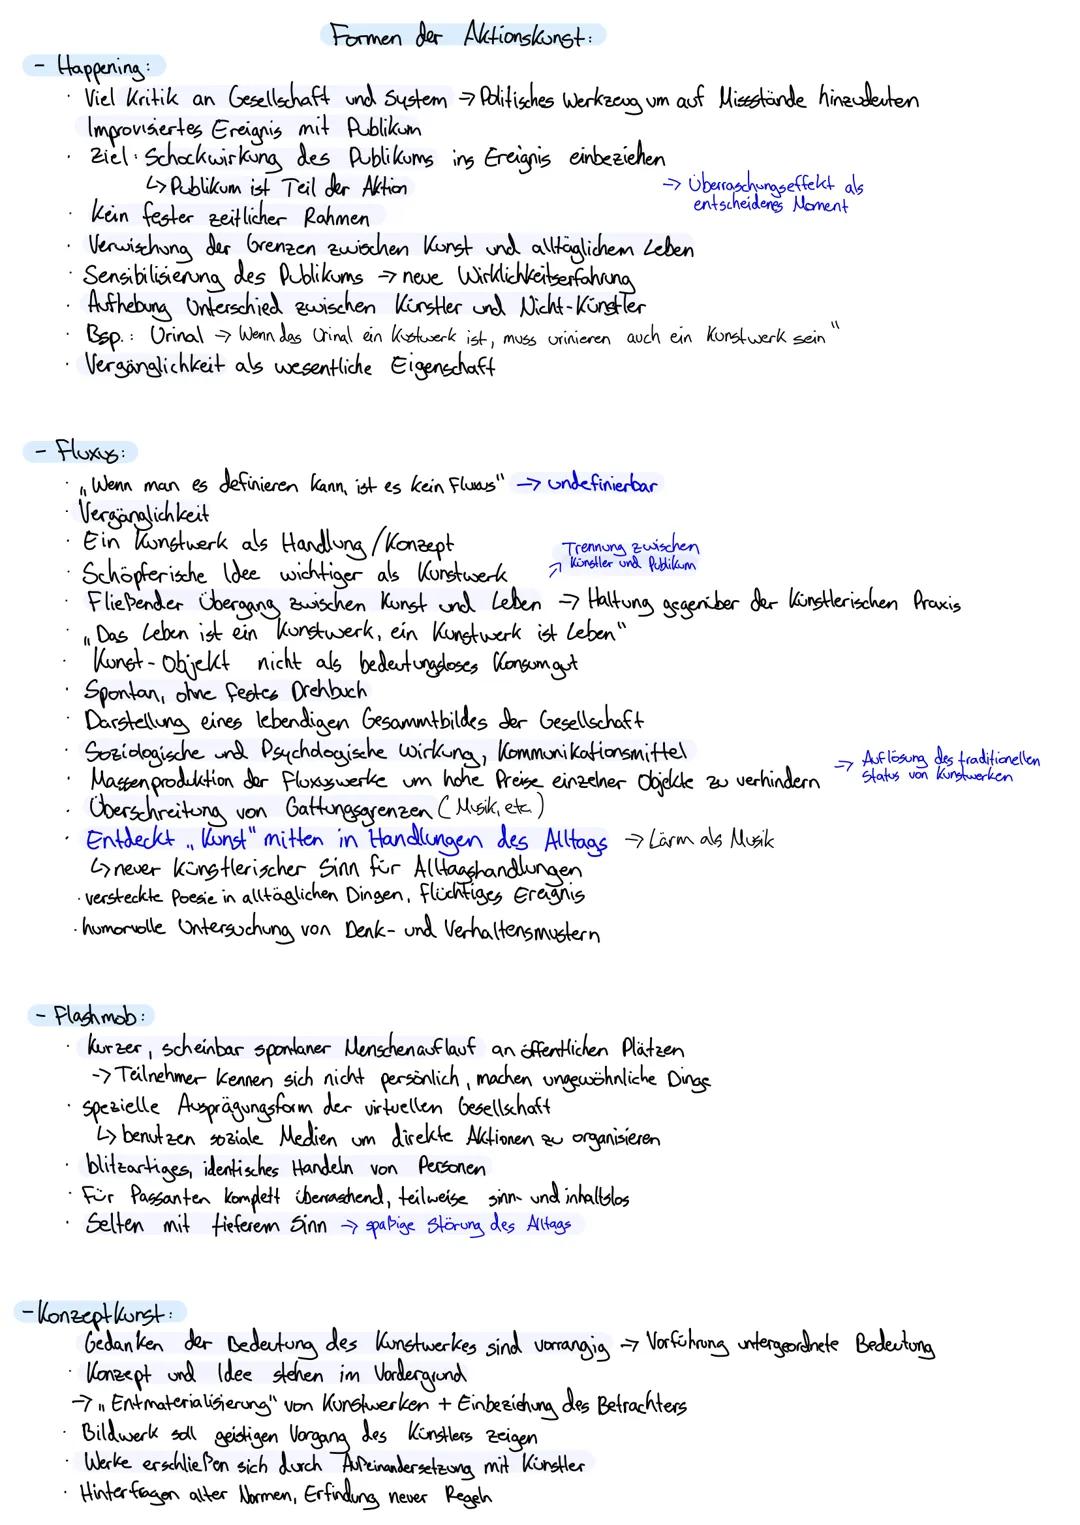 Formen der Aktionskunst:
- Happening:
· Viel Kritik an Gesellschaft und System → Politisches Werkzeug um auf Missstände hinzudeuten
Improvisiertes Ereignis mit Publikum
· Ziel: Schockwirkung des Publikums ins Ereignis einbeziehen
↳ Publikum ist Teil der Aktion
→ Überraschungseffekt als
entscheidenes Moment
· Kein fester zeitlicher Rahmen
· Verwischung der Grenzen zwischen Kunst und alltäglichem Leben
· Sensibilisierung des Publikums → neue Wirklichkeitserfahrung
· Aufhebung Unterschied zwischen Künstler und Nicht-Künstler
· Bsp.: Urinal → Wenn das Urinal ein Kustwerk ist, muss urinieren auch ein Kunstwerk sein"
· Vergänglichkeit als wesentliche Eigenschaft
- Fluxus:
· „Wenn man es definieren kann, ist es kein Fluxus" → undefinierbar
· Vergänglichkeit
· Ein Kunstwerk als Handlung/Konzept
· Schöpferische Idee wichtiger als Kunstwerk
↗ Trennung zwischen
Künstler und Publikum
· Fließender Übergang zwischen Kunst und Leben → Haltung gegenüber der künstlerischen Praxis
· „Das Leben ist ein Kunstwerk, ein Kunstwerk ist Leben"
· Kunst-Objekt nicht als bedeutungsloses Konsumgut
· Spontan, ohne festes Drehbuch
· Darstellung eines lebendigen Gesammtbildes der Gesellschaft
· Soziologische und Psychologische Wirkung, Kommunikationsmittel
· Massenproduktion der Fluxuswerke um hohe Preise einzelner Objekte zu verhindern
→ Auflösung des traditionellen
Status von Kunstwerken
· Überschreitung von Gattungsgrenzen (Musik, etc.)
· Entdeckt „Kunst" mitten in Handlungen des Alltags → Lärm als Musik
↳ neuer künstlerischer Sinn für Alltagshandlungen
· versteckte Poesie in alltäglichen Dingen, flüchtiges Ereignis
· humorvolle Untersuchung von Denk- und Verhaltensmustern
- Flashmob:
· Kurzer, scheinbar spontaner Menschenauflauf an öffentlichen Plätzen
-> Teilnehmer kennen sich nicht persönlich, machen ungewöhnliche Dinge
· spezielle Ausprägungsform der virtuellen Gesellschaft
↳ benutzen soziale Medien um direkte Aktionen zu organisieren
· blitzartiges, identisches Handeln von Personen
· Für Passanten komplett überraschend, teilweise sinn- und inhaltslos
· Selten mit tieferem Sinn → spaßige Störung des Alltags
- Konzeptkunst:
Gedanken der Bedeutung des Kunstwerkes sind vorrangig → Vorführung untergeordnete Bedeutung
· Konzept und Idee stehen im Vordergrund
→ „Entmaterialisierung" von Kunstwerken + Einbeziehung des Betrachters
· Bildwerk soll geistigen Vorgang des Künstlers zeigen
· Werke erschließen sich durch Aufeinandersetzung mit Künstler
· Hinterfragen alter Normen, Erfindung neuer Regeln